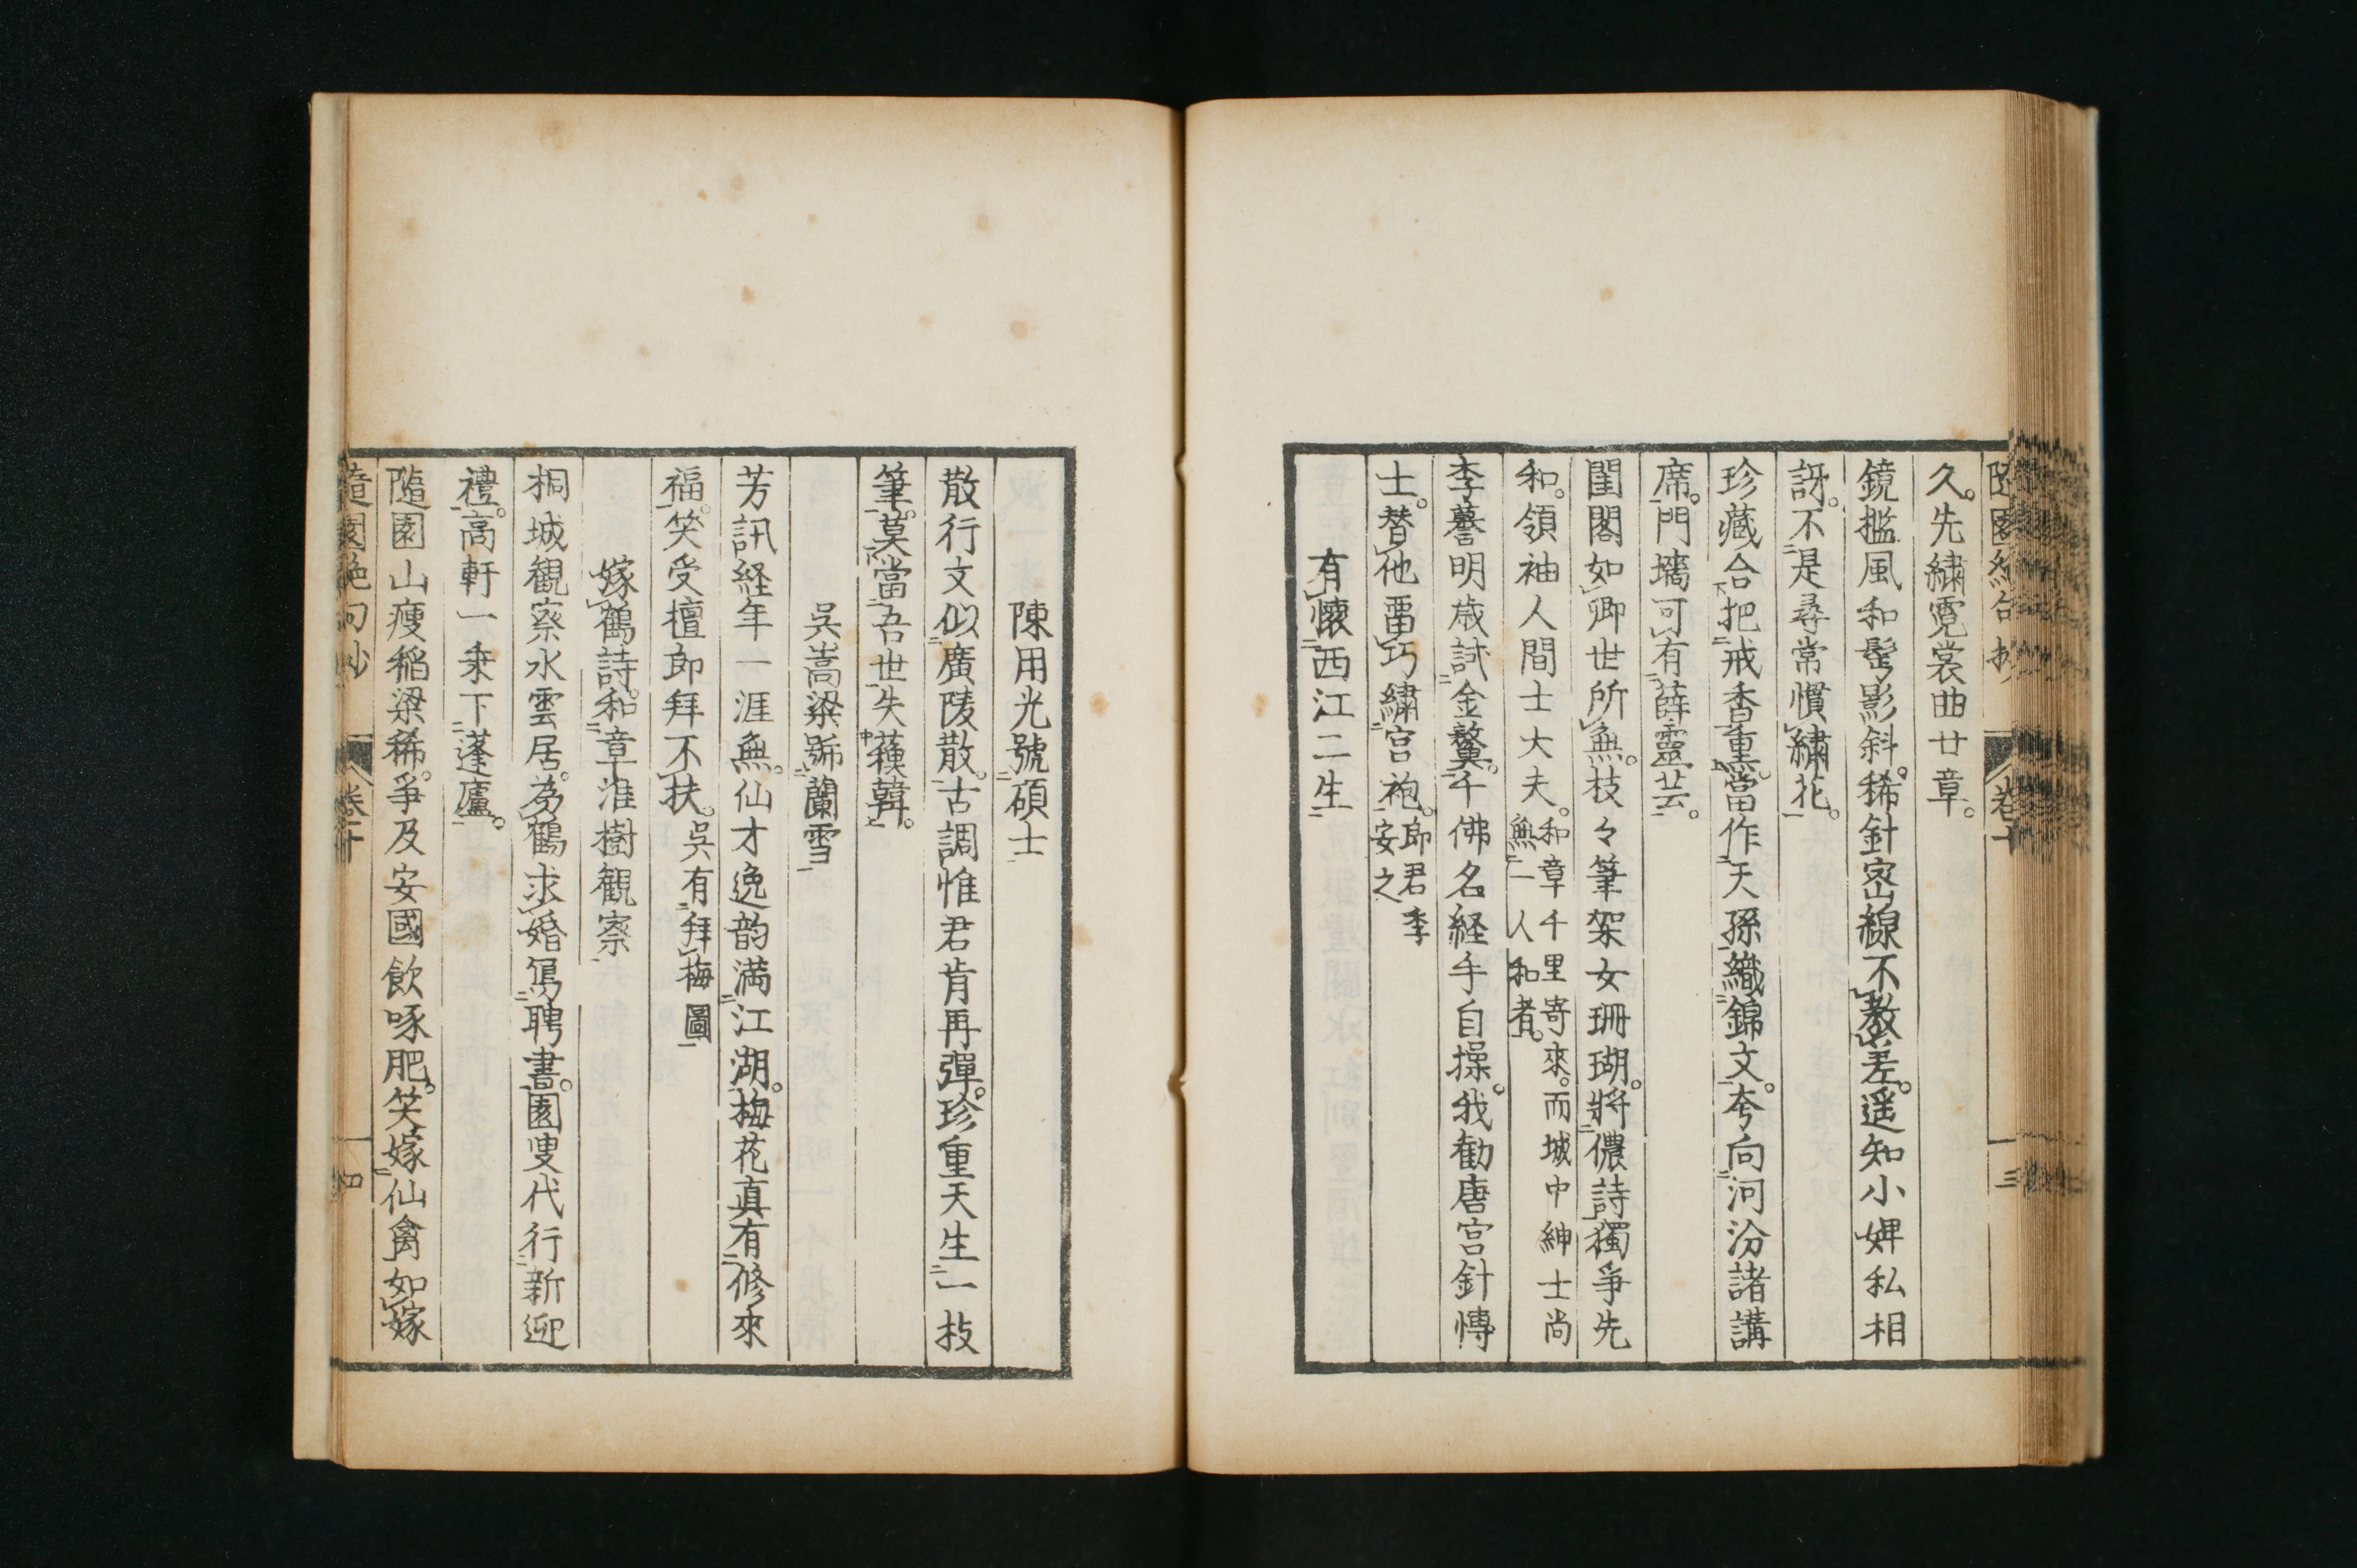 隨園絶句抄 卷十 三
久。先繡霓裳曲廿章。
鏡檻風和髩影斜。稀針密線不教差。遥知小婢私相
訝。不是尋常慣繡花。
珍藏合把戒香熏。當作天孫織錦文。夸向河汾諸講
席。門墻可有薛靈芸。
閨閣如卿世所無。枝々筆架女珊瑚。將儂詩獨爭先
和。領袖人間士大夫。和章千里寄來。而城中紳士尚無一人和者。
李謩明歳試金鼇。千佛名経手自操。我勸唐宮針博
士。替他畱巧繡宮袍。郎君李安之
有懷西江二生
陳用光號碩士
散行文似廣陵散。古調惟君肯再彈。珍重天生一枝
筆。莫當吾世失蘓韓。
吳嵩梁號蘭雪
芳訊経年一涯無。仙才逸韵満江湖。梅花真有修來
福。笑受檀郎拜不扶。吳有拜梅圖
嫁鶴詩和章淮樹観察
桐城観察水雲居。為鶴求婚寫聘書。園叟代行新迎
禮。高軒一乗下蓬廬。
隨園山瘦稲梁稀。爭及安國飲啄肥。笑嫁仙禽如嫁
隨園絶句抄 卷十 四